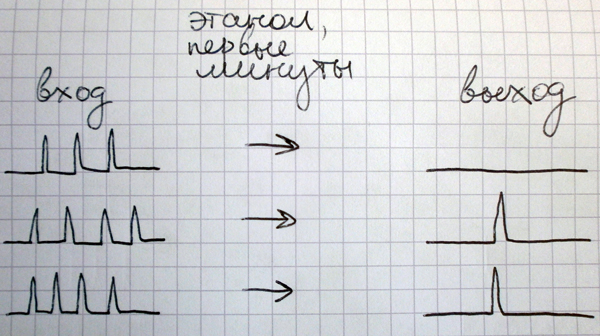 этанол,
первые
минуты
вход
выход